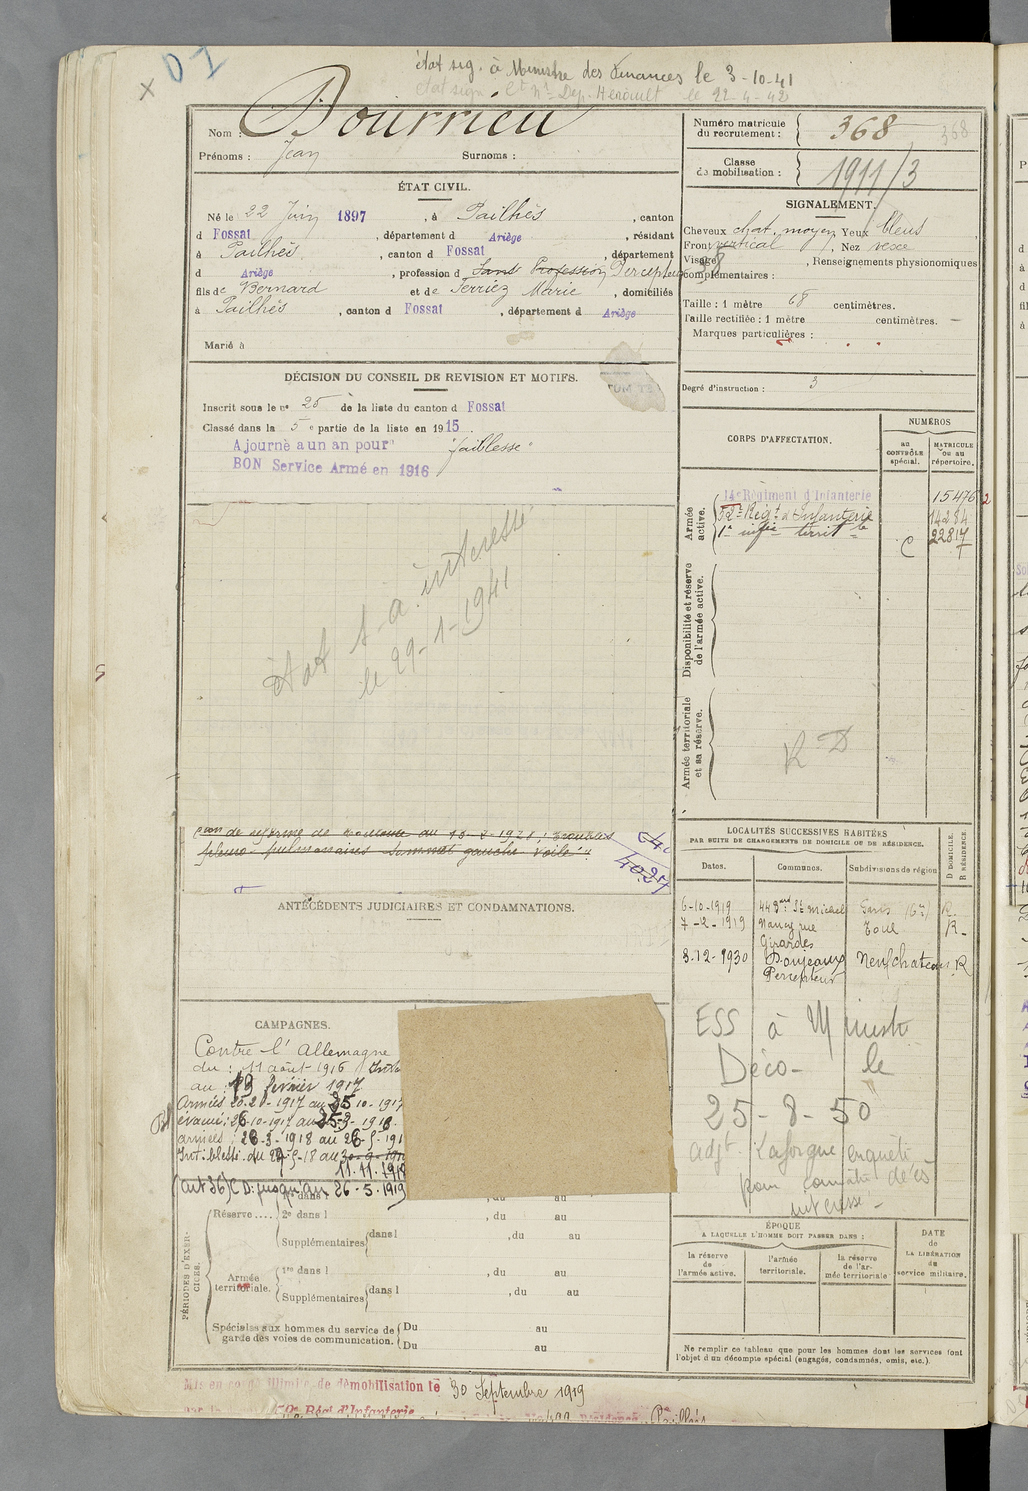 état sig. à Ministre des Finances le 3-10-41
état sign. Dép. Hérault le 22-4-42
Nom : Bourrieu
Prénoms : Jean Surnoms :
Numéro matricule du recrutement : 368
368
Classe de mobilisation : 1911/3
ÉTAT CIVIL.
Né le 22 Juin 1897, à Pailhès, canton
d Fossat, département d Ariège, résidant
à Pailhès, canton d Fossat, département
d Ariège, profession d Sans Profession Percepteur
fils de Bernard et de Terriez Marie, domiciliés
à Pailhès, canton d Fossat, département d Ariège
Marié à
SIGNALEMENT.
Cheveux chat. moyen Yeux bleus
Front vertical, Nez vexe
Visage, Renseignements physionomiques
complémentaires :
Taille : 1 mètre 68 centimètres.
Taille rectifiée : 1 mètre centimètres.
Marques particulières :
Degré d'instruction : 3
DÉCISION DU CONSEIL DE REVISION ET MOTIFS.
Inscrit sous le n° 25 de la liste du canton d Fossat
Classé dans la 5e partie de la liste en 1915.
Ajourné a un an pour "faiblesse"
BON Service Armé en 1916
état s-à. intéressé
le 29-1-1941
de réforme de du 15-2-1921 : troubles
pleuro-pulmonaires sommet gauche voilé"
ANTÉCÉDENTS JUDICIAIRES ET CONDAMNATIONS.
CORPS D'AFFECTATION.
NUMÉROS
au CONTRÔLE spécial.
MATRICULE ou au répertoire.
Armée active.
14e Régiment d Infanterie 15476
52e Régt d'Infanterie 14284
1e infie territle C 22817
Disponibilité et réserve de l'armée active.
Armée territoriale et sa réserve.
R D
LOCALITÉS SUCCESSIVES HABITÉES
PAR SUITE DE CHANGEMENTS DE DOMICILE OU DE RÉSIDENCE.
Dates. Communes. Subdivisions de région
D DOMICILE. R RÉSIDENCE
6-10-1919 44 St Michel Paris R
7-12-1919 Nancy rue Girardes Toul R
3.12-1930 Doujeaux Percepteur Neufchateau R
ESS à Ministre
Déco- le
25-8-50
adjt Laforgue enquête
pour connaître décès
intéressé-
CAMPAGNES.
Contre l'Allemagne
du : 11 août 1916
au : 13 février 1917
Armées 20-2-1917 au 25 10-1917
évacué : 26-10-1917 au 25-3-1918.
armées : 26-3-1918 au 26-5-191
Int: blessé. du 27-5-18 au 30-9-1918
11.11.1918
(art 36) C D: jusqu'au 26-5-1919
PÉRIODES D'EXERCICES.
1re dans l , du au
Réserve.... 2e dans l , du au
Supplémentaires dans l , du au
Armée territoriale.
1re dans l , du au
Supplémentaires dans l , du au
Spéciales aux hommes du service de garde des voies de communication.
Du au
Du au
ÉPOQUE
A LAQUELLE L'HOMME DOIT PASSER DANS :
la réserve de l'armée active.
l'armée territoriale.
la réserve de l'armée territoriale
DATE de LA LIBÉRATION du service militaire.
Ne remplir ce tableau que pour les hommes dont les services font
l'objet d'un décompte spécial (engagés, condamnés, omis, etc.).
Mis en congé illimité de démobilisation le 30 Septembre 1919
Régt d'Infanterie